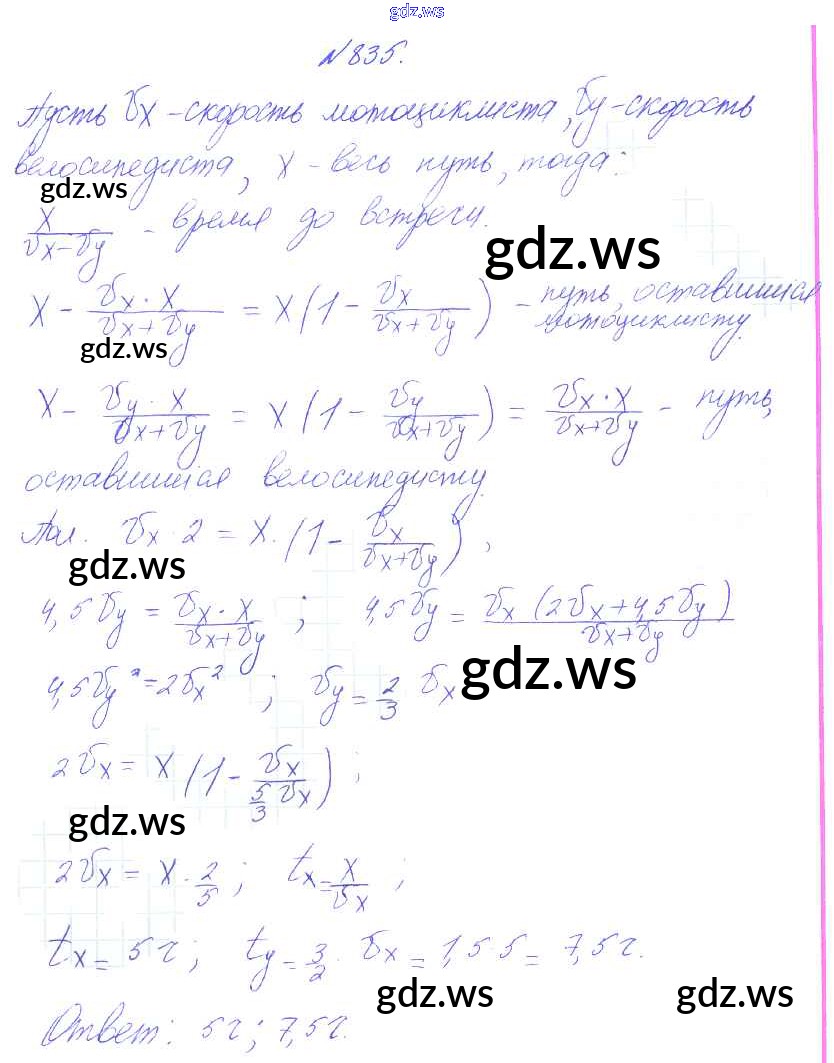 gdz.ws
№835.
Пусть Vx - скорость мотоциклиста, Vy - скорость
велосипедиста, x - весь путь, тогда:
gdz.ws
x/(Vx-Vy) - время до встречи.
gdz.ws
x - (Vx·x)/(Vx+Vy) = x(1 - Vx/(Vx+Vy)) - путь, оставшийся
мотоциклисту.
gdz.ws
x - (Vy·x)/(Vx+Vy) = x(1 - Vy/(Vx+Vy)) = (Vx·x)/(Vx+Vy) - путь,
оставшийся велосипедисту
Vx·2 = x·(1 - Vx/(Vx+Vy)),
gdz.ws
4,5Vy = (Vx·x)/(Vx+Vy); 4,5Vy = (Vx(2Vx+4,5Vy))/(Vx+Vy)
gdz.ws
4,5Vy² = 2Vx²; Vy = 2/3 Vx
2Vx = x(1 - Vx/(5/3 Vx));
gdz.ws
2Vx = x·2/5; tx = x/Vx;
tx = 5 ч; ty = 3/2·Vx = 1,5·5 = 7,5 ч.
gdz.ws gdz.ws
Ответ: 5 ч; 7,5 ч.